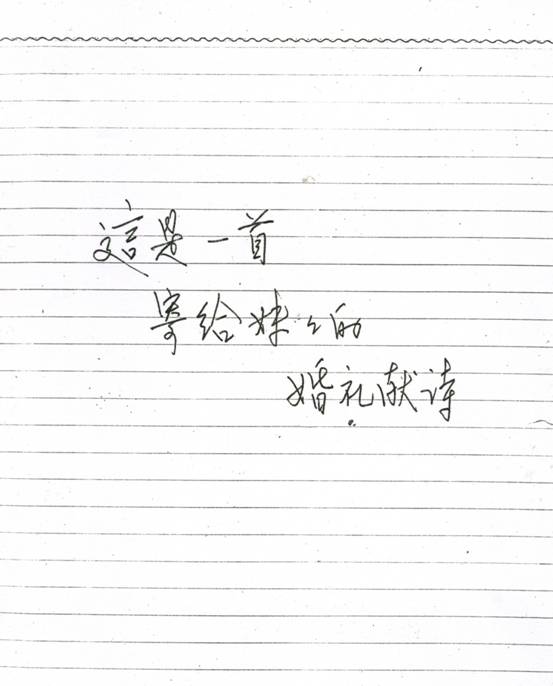 這是一首
寄给妹々的
婚礼献诗